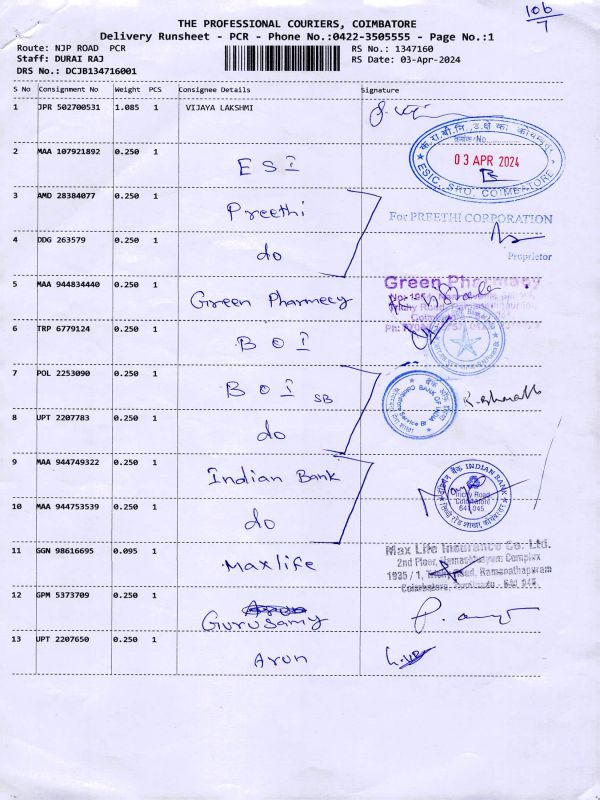 106/7
THE PROFESSIONAL COURIERS, COIMBATORE
Delivery Runsheet - PCR - Phone No.:0422-3505555 - Page No.:1
Route: NJP ROAD PCR RS No.: 1347160
Staff: DURAI RAJ RS Date: 03-Apr-2024
DRS No.: DCJB134716001
S No Consignment No Weight PCS Consignee Details Signature
1 JPR 502700531 1.085 1 VIJAYA LAKSHMI
2 MAA 107921892 0.250 1 ESI
03 APR 2024
ESIC, SRO, COIMBATORE
3 AMD 28384077 0.250 1 Preethi
For PREETHI CORPORATION
4 DDG 263579 0.250 1 do
Proprietor
5 MAA 944834440 0.250 1 Green Pharmecy
Green Pharmacy
6 TRP 6779124 0.250 1 BOI
7 POL 2253090 0.250 1 BOI SB
8 UPT 2207783 0.250 1 do
9 MAA 944749322 0.250 1 Indian Bank
INDIAN BANK
Trichy Road
Coimbatore
641 045
10 MAA 944753539 0.250 1 do
11 GGN 98616695 0.095 1 Maxlife
Max Life Insurance Co. Ltd.
2nd Floor, Complex
1935 / 1, Road, Ramanathapuram
Coimbatore, Tamilnadu - 641 045
12 GPM 5373709 0.250 1 Gurusamy
13 UPT 2207650 0.250 1 Arun